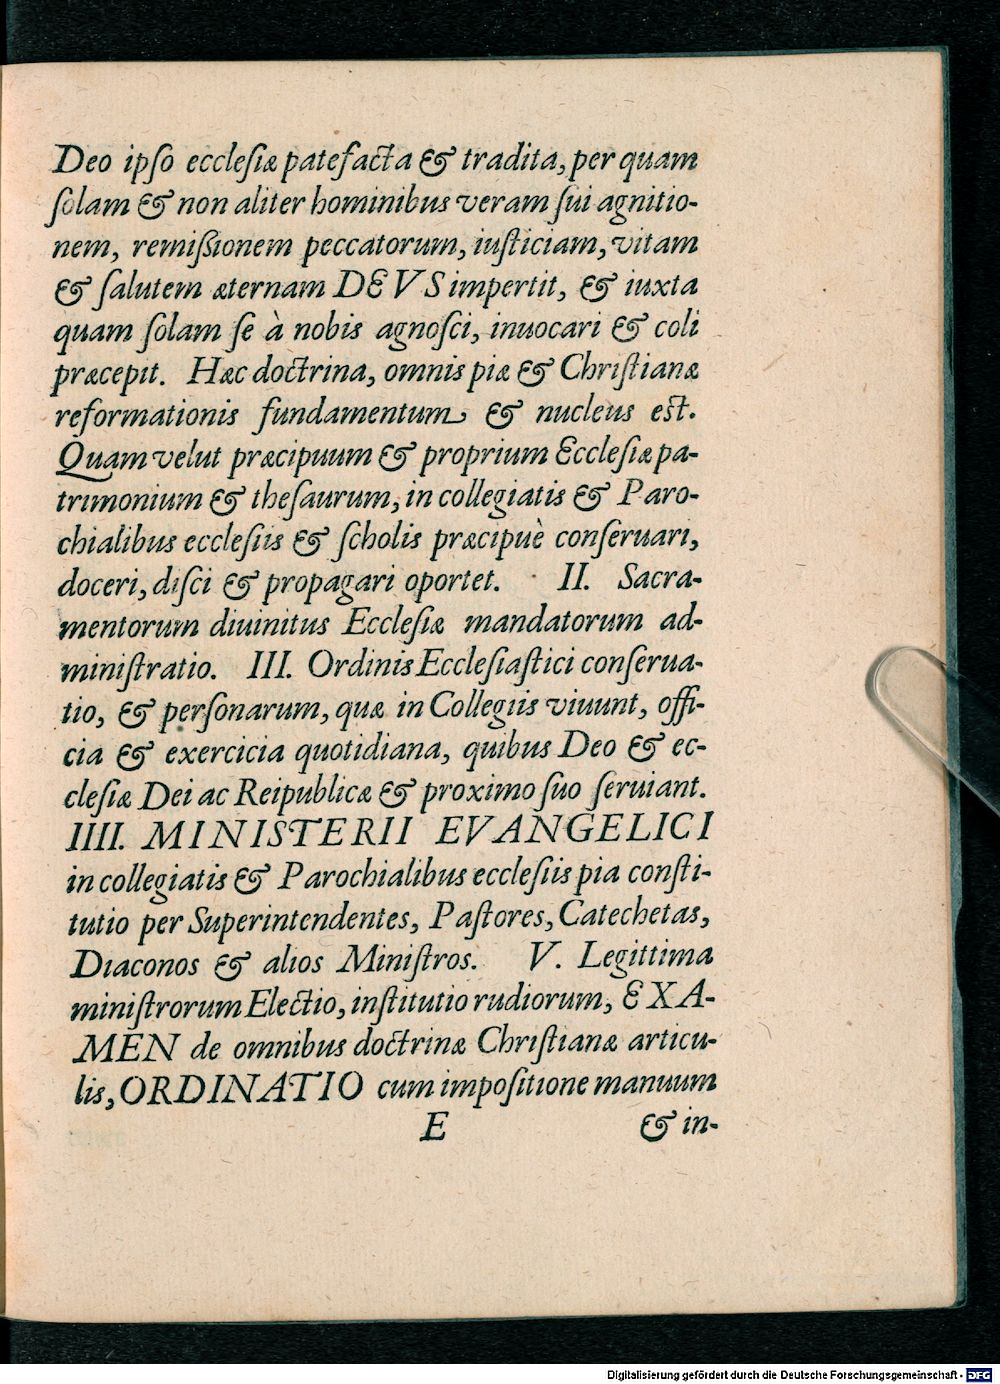 Deo ipſo eccleſiæ patefacta & tradita, per quam
ſolam & non aliter hominibus veram ſui agnitio-
nem, remiſsionem peccatorum, iuſticiam, vitam
& ſalutem æternam DEVS impertit, & iuxta
quam ſolam ſe à nobis agnoſci, inuocari & coli
præcepit. Hæc doctrina, omnis piæ & Chriſtianæ
reformationis fundamentum & nucleus est.
Quam velut præcipuum & proprium Eccleſiæ pa-
trimonium & theſaurum, in collegiatis & Paro-
chialibus eccleſiis & ſcholis præcipuè conſeruari,
doceri, diſci & propagari oportet. II. Sacra-
mentorum diuinitus Eccleſiæ mandatorum ad-
miniſtratio. III. Ordinis Eccleſiaſtici conſerua-
tio, & perſonarum, quæ in Collegiis viuunt, offi-
cia & exercicia quotidiana, quibus Deo & ec-
cleſiæ Dei ac Reipublicæ & proximo ſuo ſeruiant.
IIII. MINISTERII EVANGELICI
in collegiatis & Parochialibus eccleſiis pia conſti-
tutio per Superintendentes, Paſtores, Catechetas,
Diaconos & alios Miniſtros. V. Legittima
miniſtrorum Electio, inſtitutio rudiorum, EXA-
MEN de omnibus doctrinæ Chriſtianæ articu-
lis, ORDINATIO cum impoſitione manuum
E & in-
Digitalisierung gefördert durch die Deutsche Forschungsgemeinschaft - DFG